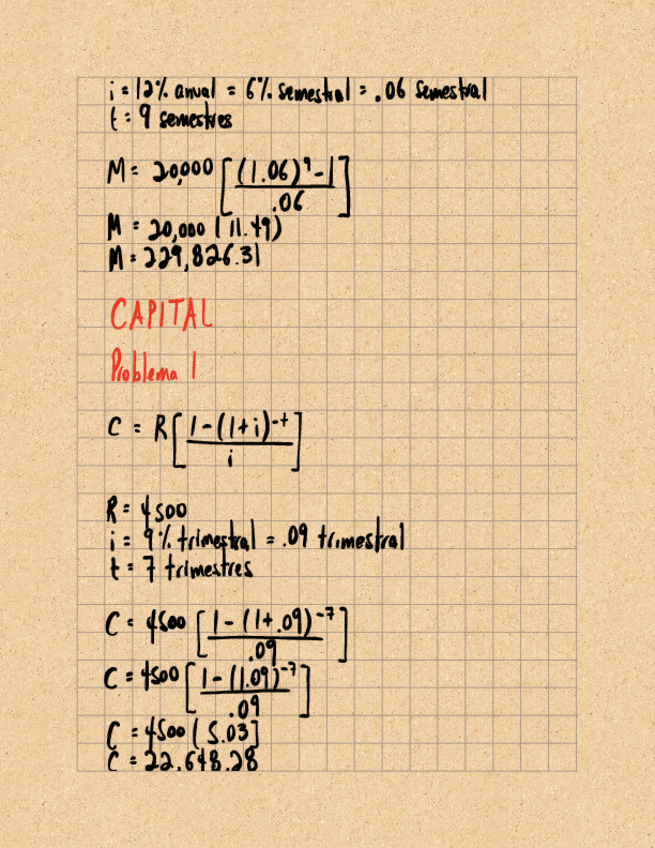 i = 12% anual = 6% semestral = .06 semestral
t = 9 semestres
M = 20,000 [ (1.06)⁹ - 1 / .06 ]
M = 20,000 (11.49)
M = 229,826.31
CAPITAL
Problema 1
C = R [ 1 - (1+i)⁻ᵗ / i ]
R = 4500
i = 9% trimestral = .09 trimestral
t = 7 trimestres
C = 4500 [ 1 - (1+.09)⁻⁷ / .09 ]
C = 4500 [ 1 - (1.09)⁻⁷ / .09 ]
C = 4500 [5.03]
C = 22,648.28